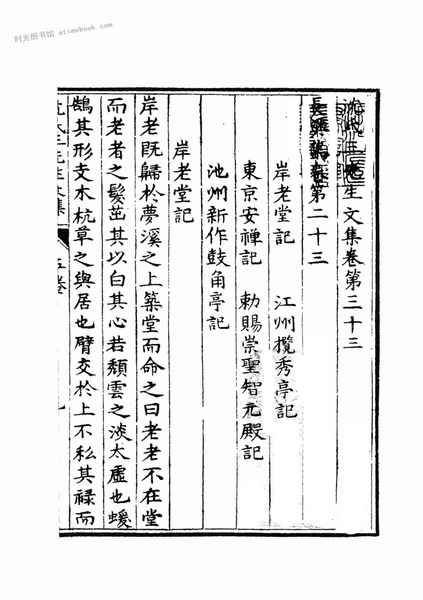 时光图书馆 etimebook.com
沈氏三先生文集卷第三十三
長興集卷第二十三
岸老堂記 江州攬秀亭記
東京安禪記 勅賜崇聖智元殿記
池州新作鼓角亭記
岸老堂記
岸老既歸於夢溪之上築堂而命之曰老老不在堂
而老者之髮茁其以白其心若頽雲之淡太虛也蝯
鵠其形支木杭草之與居也臂交於上不私其祿而